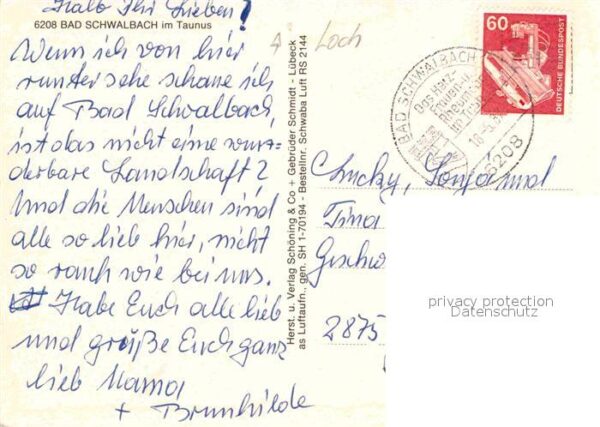 Hallo Ihr Lieben!
6208 BAD SCHWALBACH im Taunus
Wenn ich von hier
runter sehe schaue ich
auf Bad Schwalbach,
ist das nicht eine wun-
derbare Landschaft?
Und die Menschen sind
alle so lieb hier, nicht
so rauh wie bei uns.
Habe Euch alle lieb
und grüße Euch ganz
lieb Mama
+ Brunhilde
Herst. u. Verlag Schöning & Co + Gebrüder Schmidt - Lübeck
as Luftaufn., gen. SH 1-70194 - Bestellnr. Schwaba Luft RS 2144
Loch
60
DEUTSCHE BUNDESPOST
BAD SCHWALBACH
Das Herz-
Frauen-u.
Rheuma
im
6208
Lucky, Sonja und
Tina
Geschw
2875
privacy protection
Datenschutz